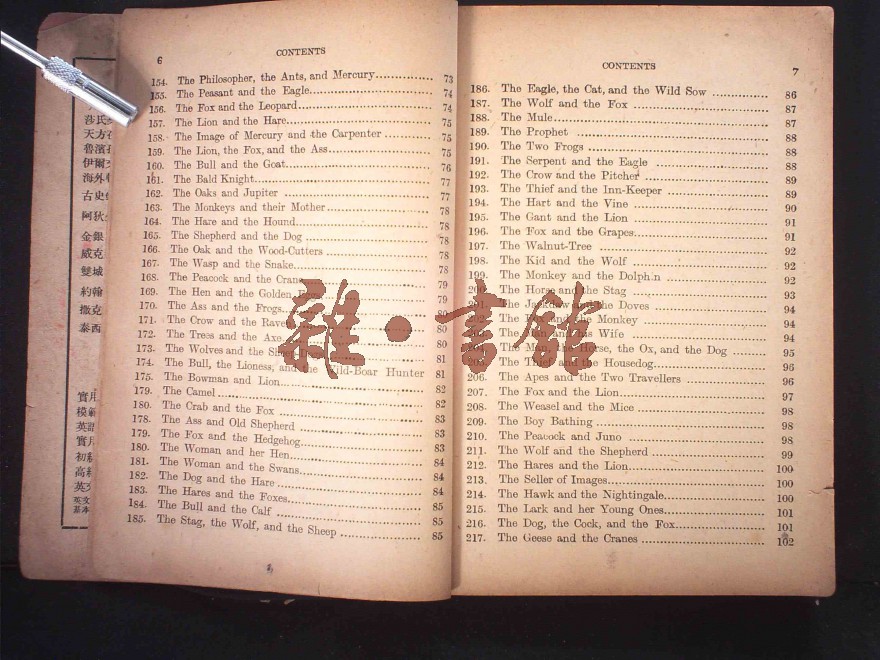 6
CONTENTS
154. The Philosopher, the Ants, and Mercury 73
155. The Peasant and the Eagle 74
156. The Fox and the Leopard 74
157. The Lion and the Hare 75
158. The Image of Mercury and the Carpenter 75
159. The Lion, the Fox, and the Ass 75
160. The Bull and the Goat 76
161. The Bald Knight 77
162. The Oaks and Jupiter 77
163. The Monkeys and their Mother 78
164. The Hare and the Hound 78
165. The Shepherd and the Dog 78
166. The Oak and the Wood-Cutters 78
167. The Wasp and the Snake 78
168. The Peacock and the Crane 79
169. The Hen and the Golden 79
170. The Ass and the Frogs 80
171. The Crow and the Raven 80
172. The Trees and the Axe 80
173. The Wolves and the 81
174. The Bull, the Lioness, and the Wild-Boar Hunter 81
175. The Bowman and Lion 82
179. The Camel 82
180. The Crab and the Fox 83
178. The Ass and Old Shepherd 83
179. The Fox and the Hedgehog 83
180. The Woman and her Hen 84
181. The Woman and the Swans 84
182. The Dog and the Hare 84
183. The Hares and the Foxes 85
184. The Bull and the Calf 85
185. The Stag, the Wolf, and the Sheep 85
CONTENTS
7
186. The Eagle, the Cat, and the Wild Sow 86
187. The Wolf and the Fox 87
188. The Mule 87
189. The Prophet 88
190. The Two Frogs 88
191. The Serpent and the Eagle 88
192. The Crow and the Pitcher 89
193. The Thief and the Inn-Keeper 89
194. The Hart and the Vine 90
195. The Gant and the Lion 91
196. The Fox and the Grapes 91
197. The Walnut-Tree 92
198. The Kid and the Wolf 92
199. The Monkey and the Dolphin 92
200. The Horse and the Stag 93
201. The Jackdaw and the Doves 94
The and the Monkey 94
The Man and his Wife 94
The Man, the Horse, the Ox, and the Dog 95
205. The Thief and the Housedog 96
206. The Apes and the Two Travellers 96
207. The Fox and the Lion 97
208. The Weasel and the Mice 98
209. The Boy Bathing 98
210. The Peacock and Juno 98
211. The Wolf and the Shepherd 99
212. The Hares and the Lion 100
213. The Seller of Images 100
214. The Hawk and the Nightingale 100
215. The Lark and her Young Ones 101
216. The Dog, the Cock, and the Fox 101
217. The Geese and the Cranes 102
莎氏
天方
魯濱
伊爾
海外
古史
阿狄
金銀
威克
雙城
約翰
撒克
泰西
實用
模範
英語
實用
初級
高級
英文
英文
基本
雜·書館